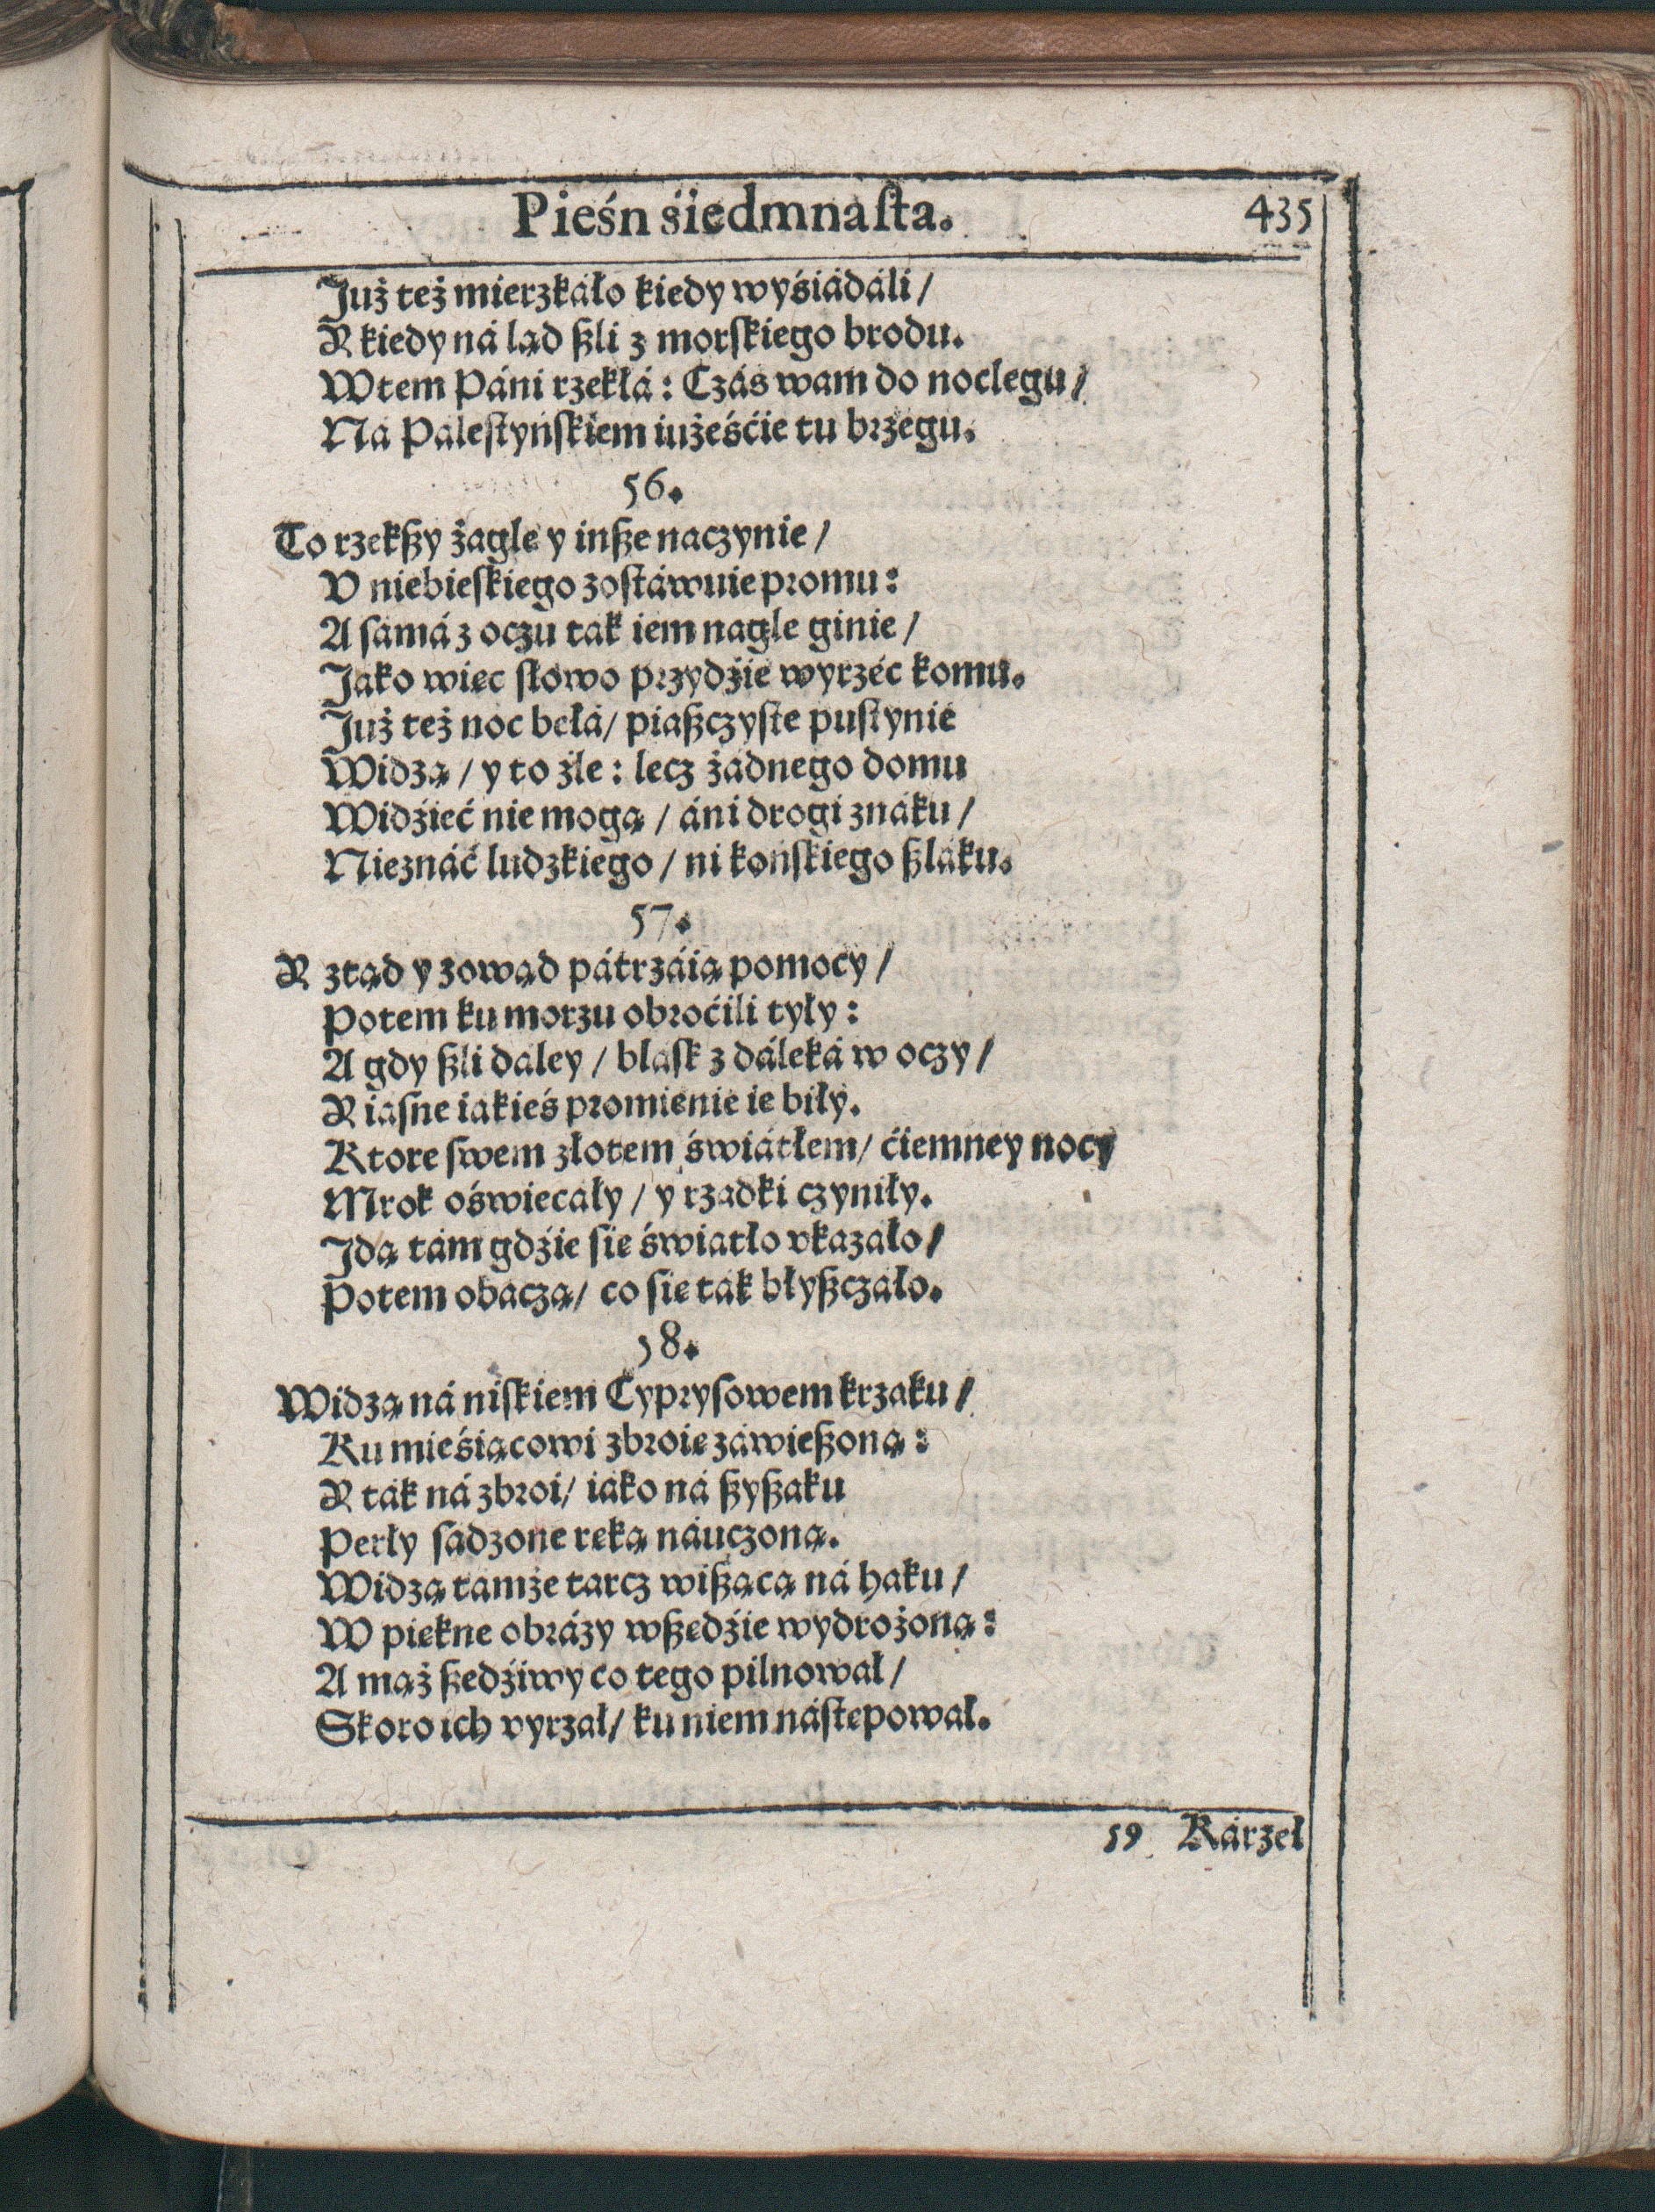 Pieśń śiedmnaſta. 435
Już też mierzkáło kiedy wyśiádáli /
Y kiedy ná ląd ßli z morſkiego brodu.
Wtem Páni rzekłá: Czás wam do noclegu /
Ná Páleſtyńſkiem iużeśćie tu brzegu.
56.
To rzekßy żagle y inße naczynie /
V niebieſkiego zoſtáwuie promu:
A ſámá z oczu tak iem nagle ginie /
Jako wiec ſłowo przydźie wyrzéc komu.
Już też noc belá / piaßczyſte puſtynie
Widzą / y to źle: lecz żadnego domu
Widźieć nie mogą / áni drogi znáku /
Nieznáć ludzkiego / ni końſkiego ßláku.
57.
Y ztąd y zowąd pátrzáią pomocy /
Potem ku morzu obroćili tyły:
A gdy ßli daley / blaſk z dáleká w oczy /
Y iaſne iakieś promienie ie biły.
Ktore ſwem złotem świátłem / ćiemney nocy
Mrok oświecały / y rzadki czyniły.
Jdą tám gdźie ſie świátło vkazáło /
Potem obaczą / co ſie tak błyßczáło.
58.
Widzą ná niſkiem Cypryſowem krzaku /
Ku mieśiącowi zbroie záwießoną:
Y ták ná zbroi / iáko ná ßyßaku
Perły ſádzone reką náuczoną.
Widzą tamże tarcz wißącą ná haku /
W piekne obrázy wßedźie wydrożoną:
A mąż ßedźiwy co tego pilnował /
Skoro ich vyrzał / ku niem náſtepował.
59 Kárzeł